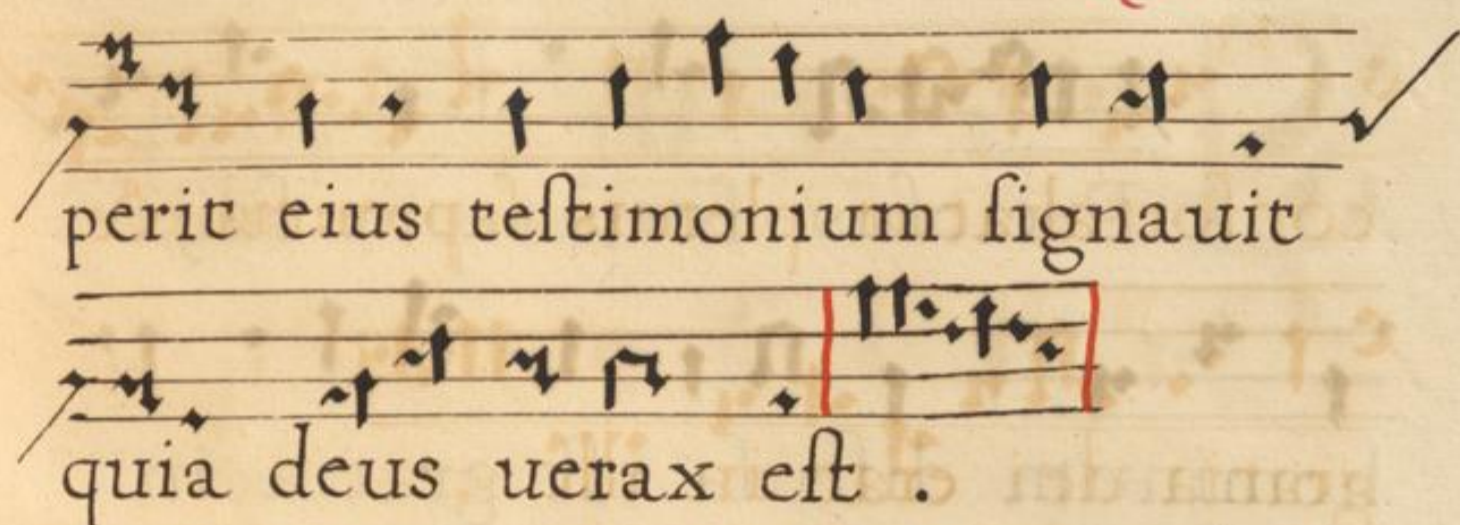 perit eius teſtimonium ſignauit
quia deus uerax eſt .